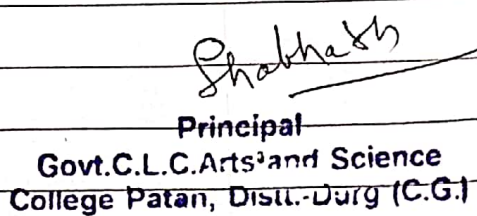 Principal
Govt.C.L.C.Arts and Science
College Patan, Distt.-Durg (C.G.)